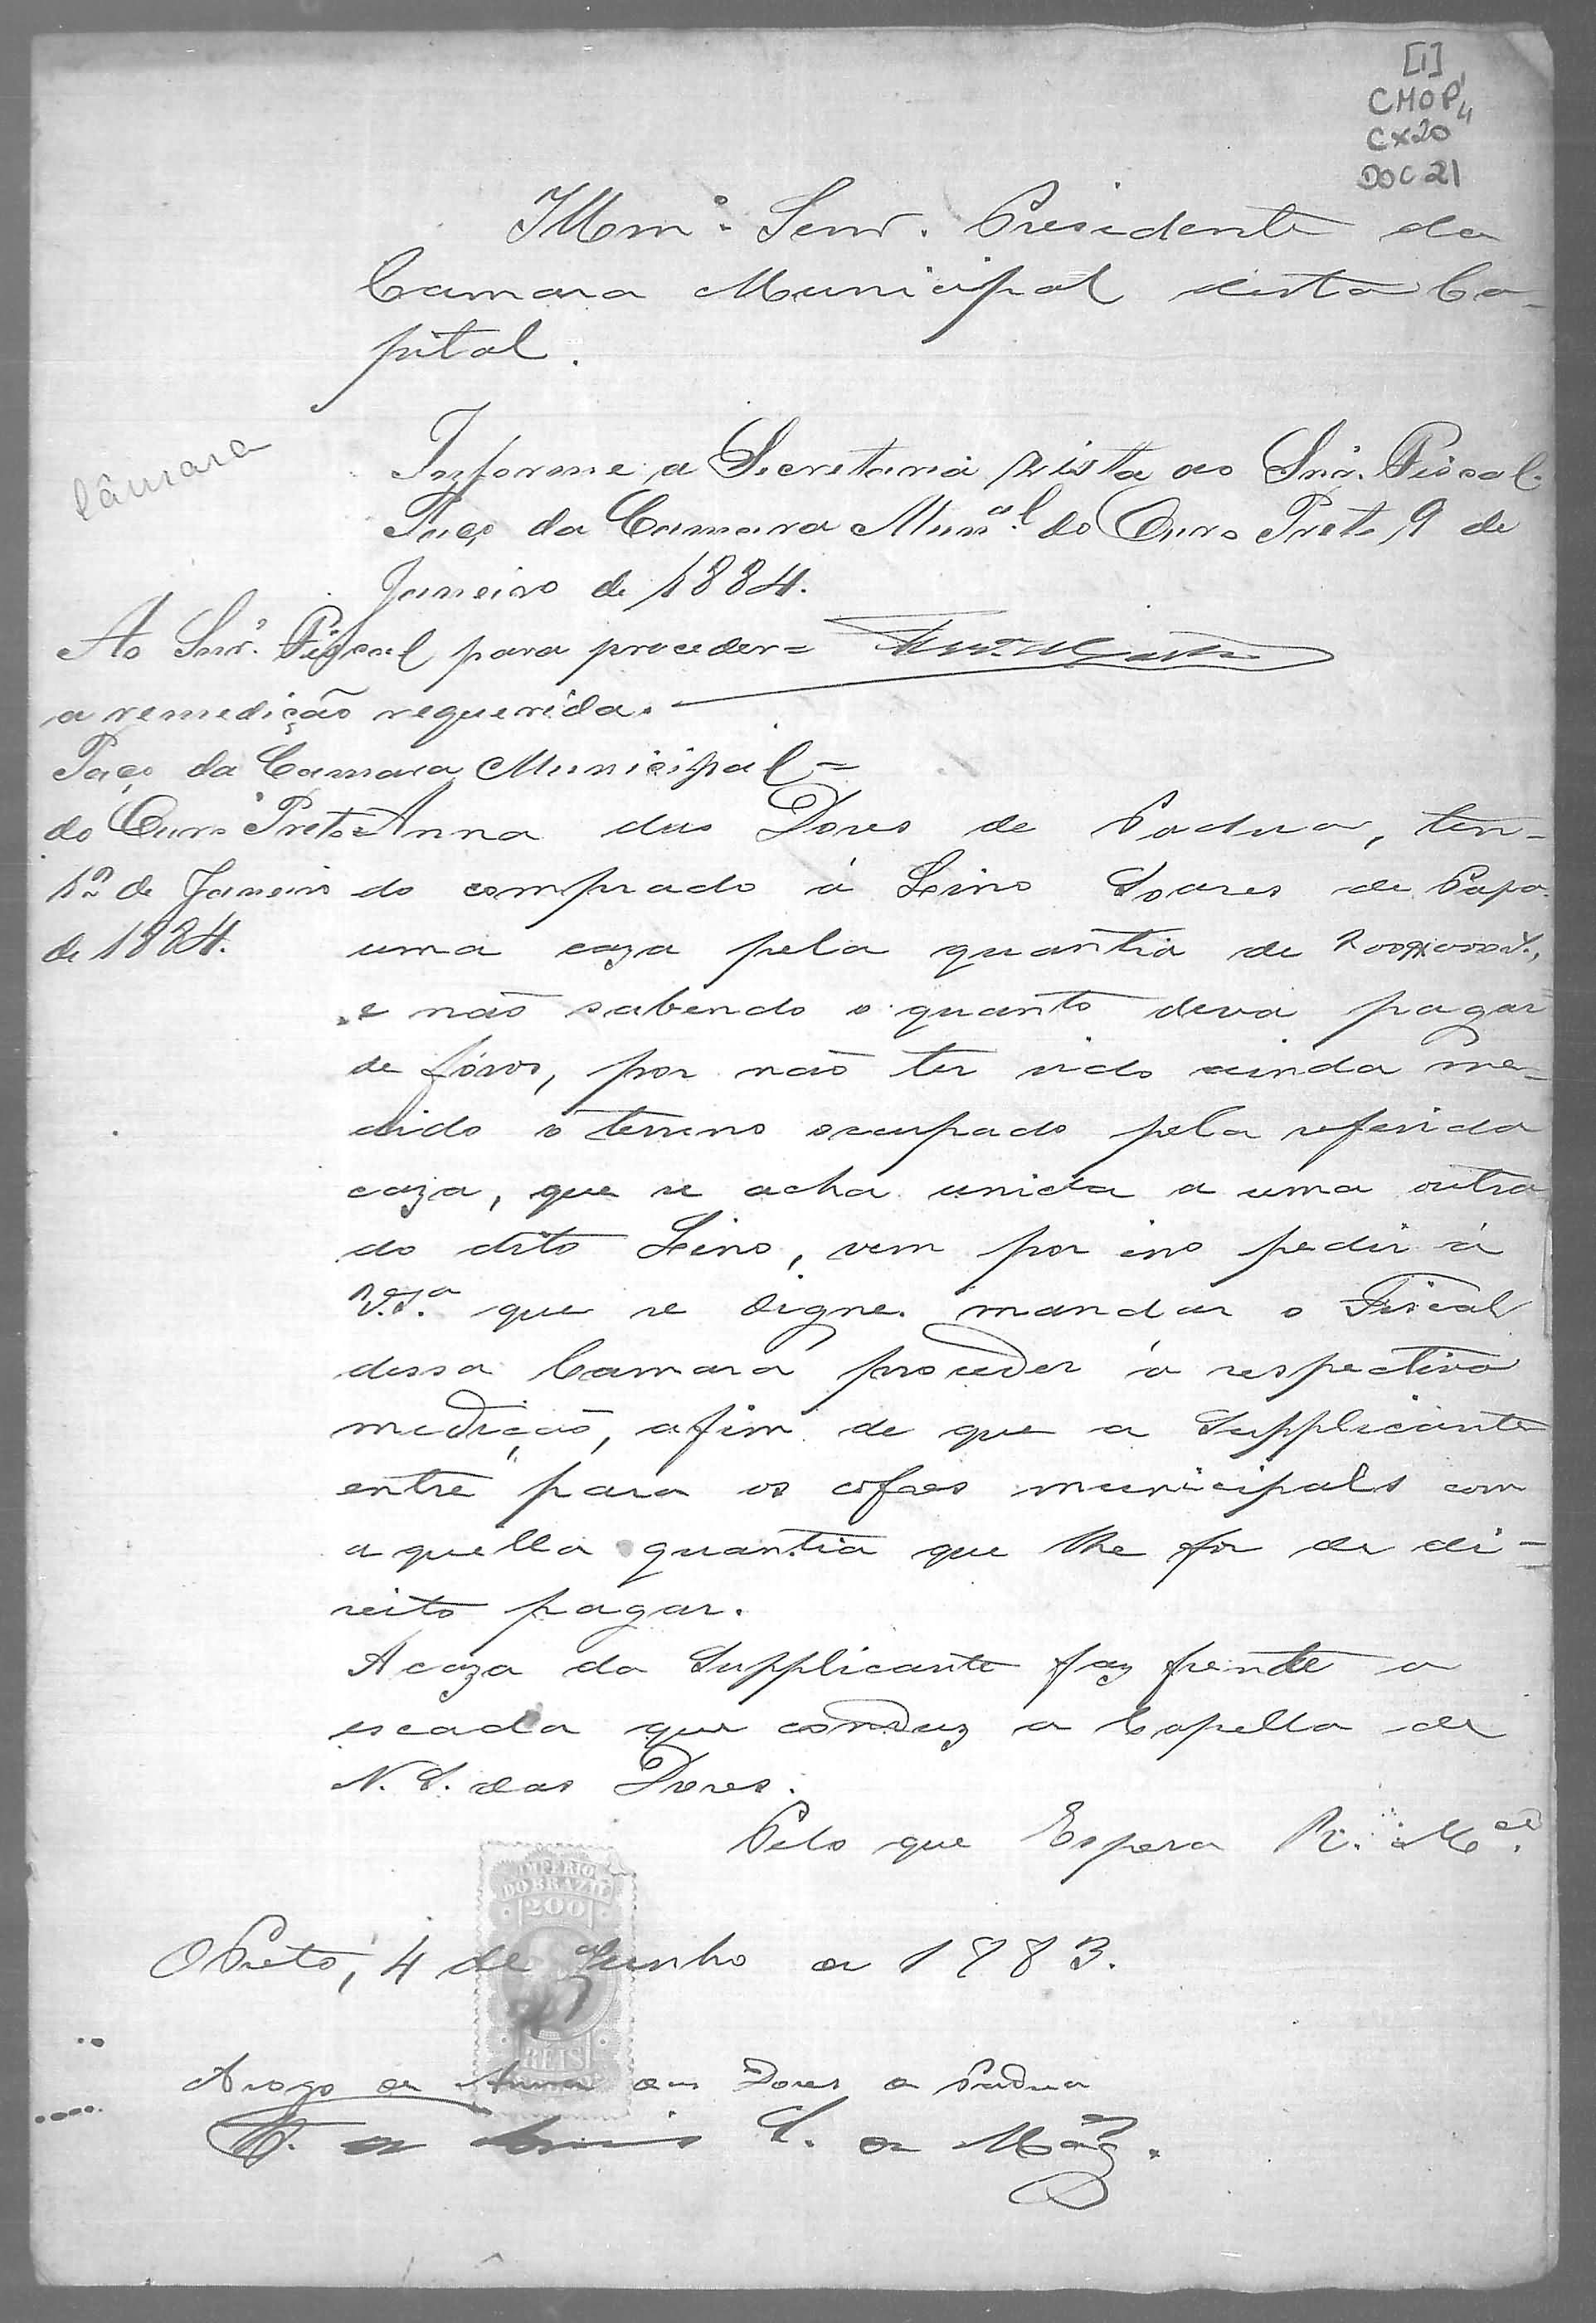 [1]
CMOP
Cx20
DOC 21
Illmº. Senr. Presidente da
Camara Municipal desta Ca-
pital.
Câmara
Informe a Secretaria, vista ao Snr. Fiscal.
Paço da Camara Munal. do Ouro Preto, 9 de
Janeiro de 1884.
Ao Snr. Fiscal para proceder=
a remedição requerida.
Paço da Camara Municipal=
do Ouro Preto=
de Janeiro
de 1884.
Anna das Dores de Padua, ten-
do comprado á Lino Soares de
uma caza pela quantia de
e não sabendo o quanto deva pagar
de fóros, por não ter sido ainda me-
dido o terreno occupado pela referida
caza, que se acha unida a uma outra
do dito Lino, vem por isso pedir á
V.Sª. que se digne mandar o Fiscal
dessa Camara proceder á respectiva
medição, afim de que a Supplicante
entre para os cofres municipaes com
aquella quantia que lhe for de di-
reito pagar.
A caza da Supplicante faz frente a
escada que conduz a Capella de
N. S. das Dores.
Pelo que Espera R. Mcê.
IMPERIO
DO BRAZIL
200
REIS
O Preto, 4 de Junho de 1883.
A rogo de Anna das Dores de Padua